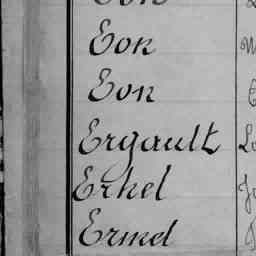 Eon
Eon
Ergault
Erhel
Ermel